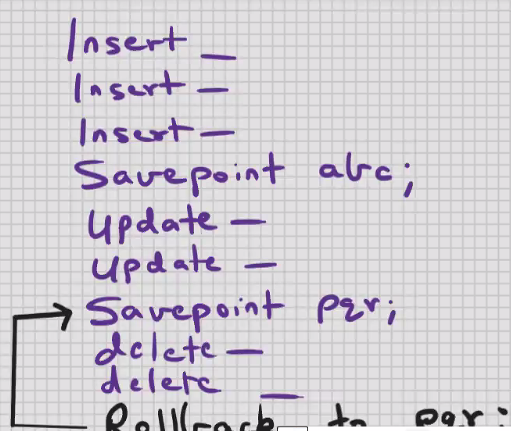 Insert _
Insert —
Insert —
Savepoint abc;
Update —
Update —
Savepoint pqr;
delete —
delete _
Rollback to pqr;